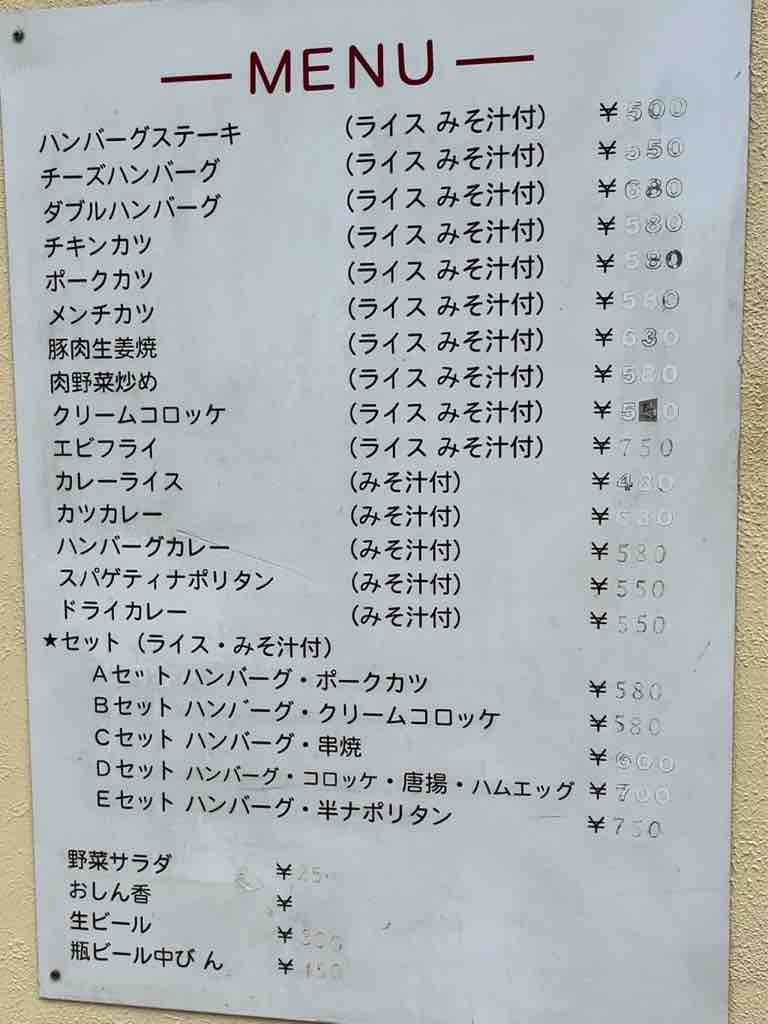 MENU
ハンバーグステーキ (ライス みそ汁付) ¥500
チーズハンバーグ (ライス みそ汁付) ¥550
ダブルハンバーグ (ライス みそ汁付) ¥680
チキンカツ (ライス みそ汁付) ¥580
ポークカツ (ライス みそ汁付) ¥580
メンチカツ (ライス みそ汁付) ¥
豚肉生姜焼 (ライス みそ汁付) ¥630
肉野菜炒め (ライス みそ汁付) ¥580
クリームコロッケ (ライス みそ汁付) ¥
エビフライ (ライス みそ汁付) ¥750
カレーライス (みそ汁付) ¥480
カツカレー (みそ汁付) ¥
ハンバーグカレー (みそ汁付) ¥580
スパゲティナポリタン (みそ汁付) ¥550
ドライカレー (みそ汁付) ¥550
★セット (ライス・みそ汁付)
Aセット ハンバーグ・ポークカツ ¥580
Bセット ハンバーグ・クリームコロッケ ¥580
Cセット ハンバーグ・串焼 ¥600
Dセット ハンバーグ・コロッケ・唐揚・ハムエッグ ¥700
Eセット ハンバーグ・半ナポリタン ¥750
野菜サラダ ¥
おしん香 ¥
生ビール ¥
瓶ビール中びん ¥450